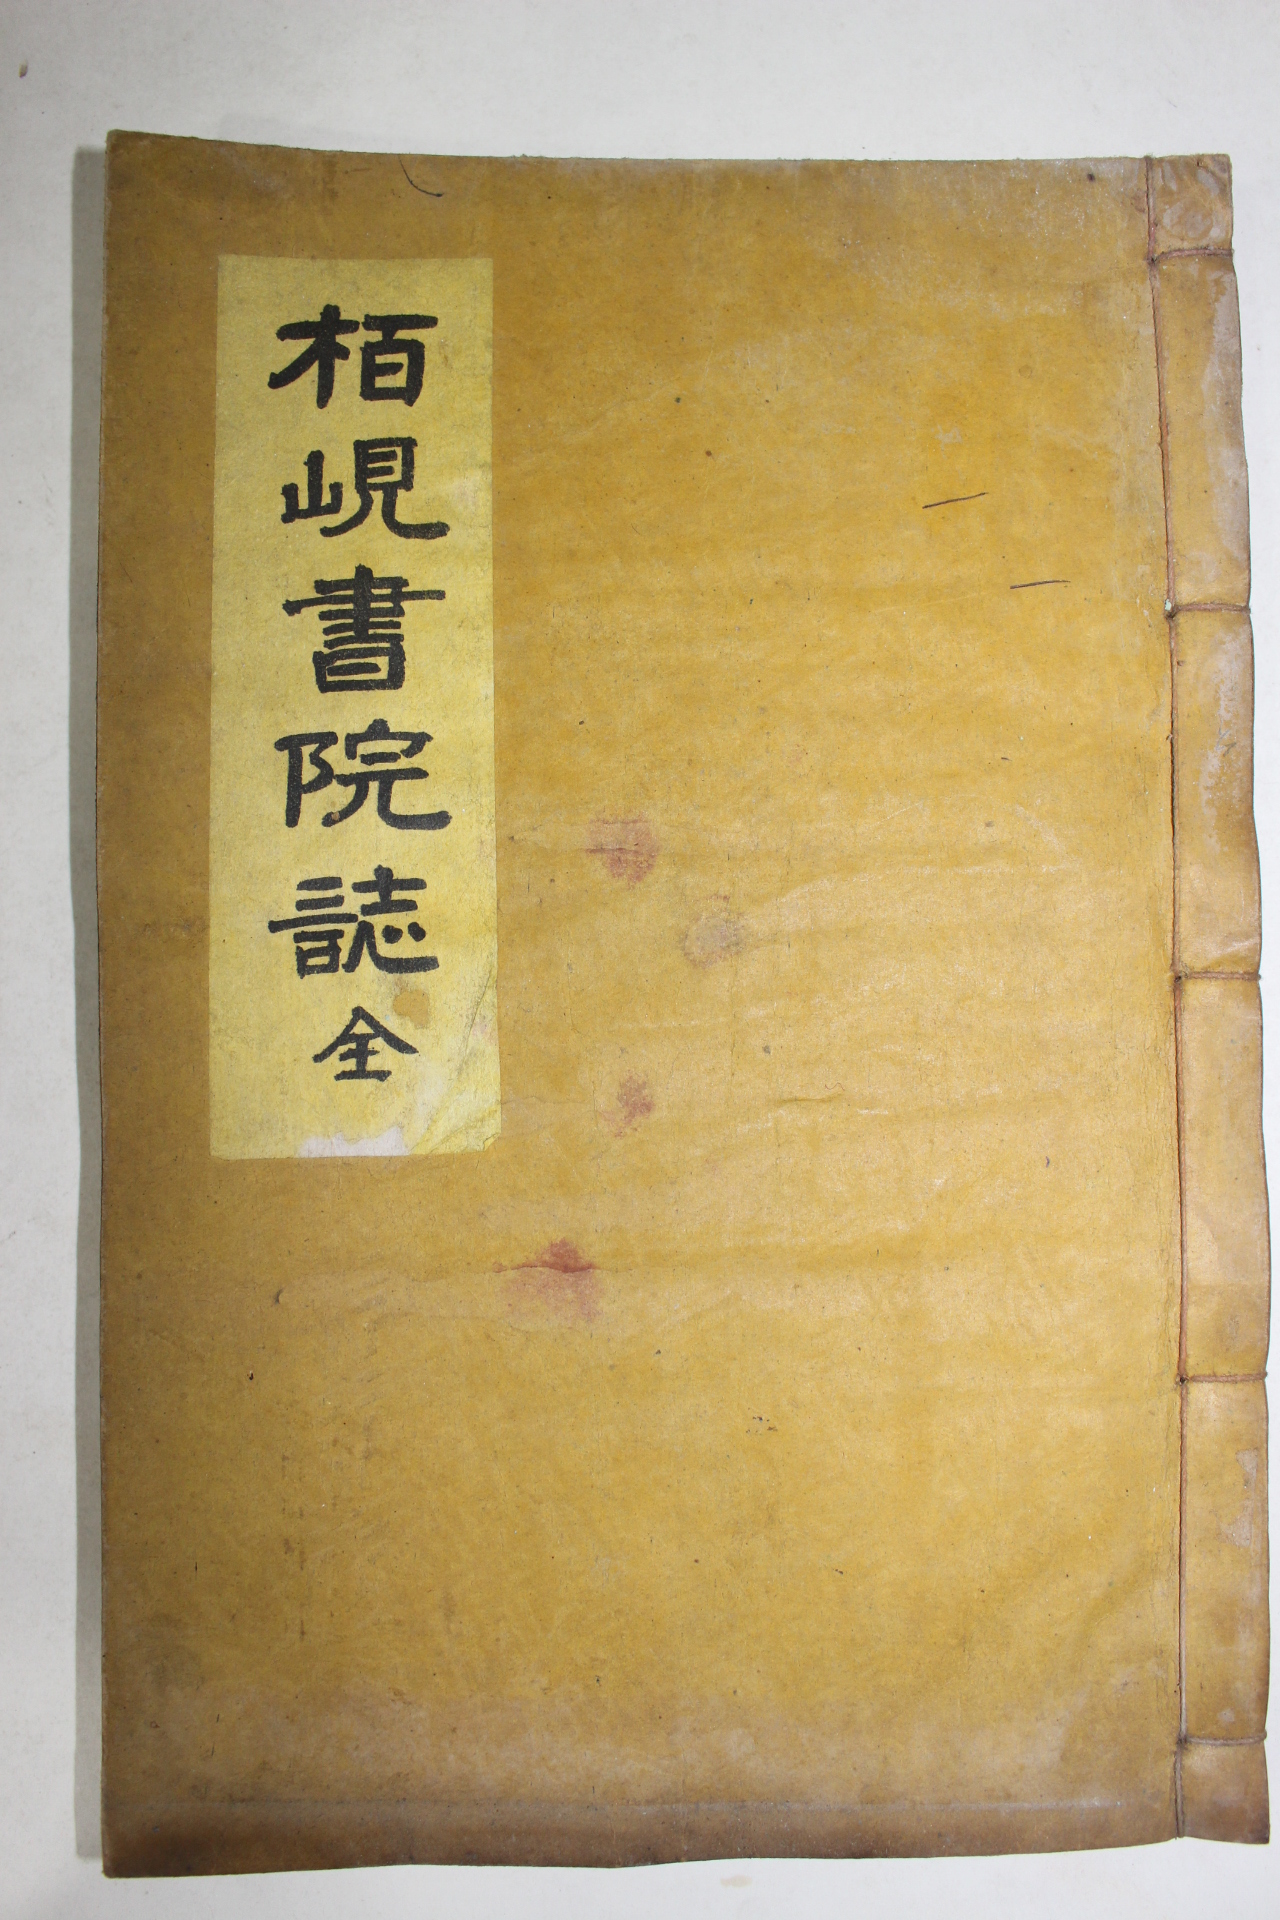 栢峴書院誌全